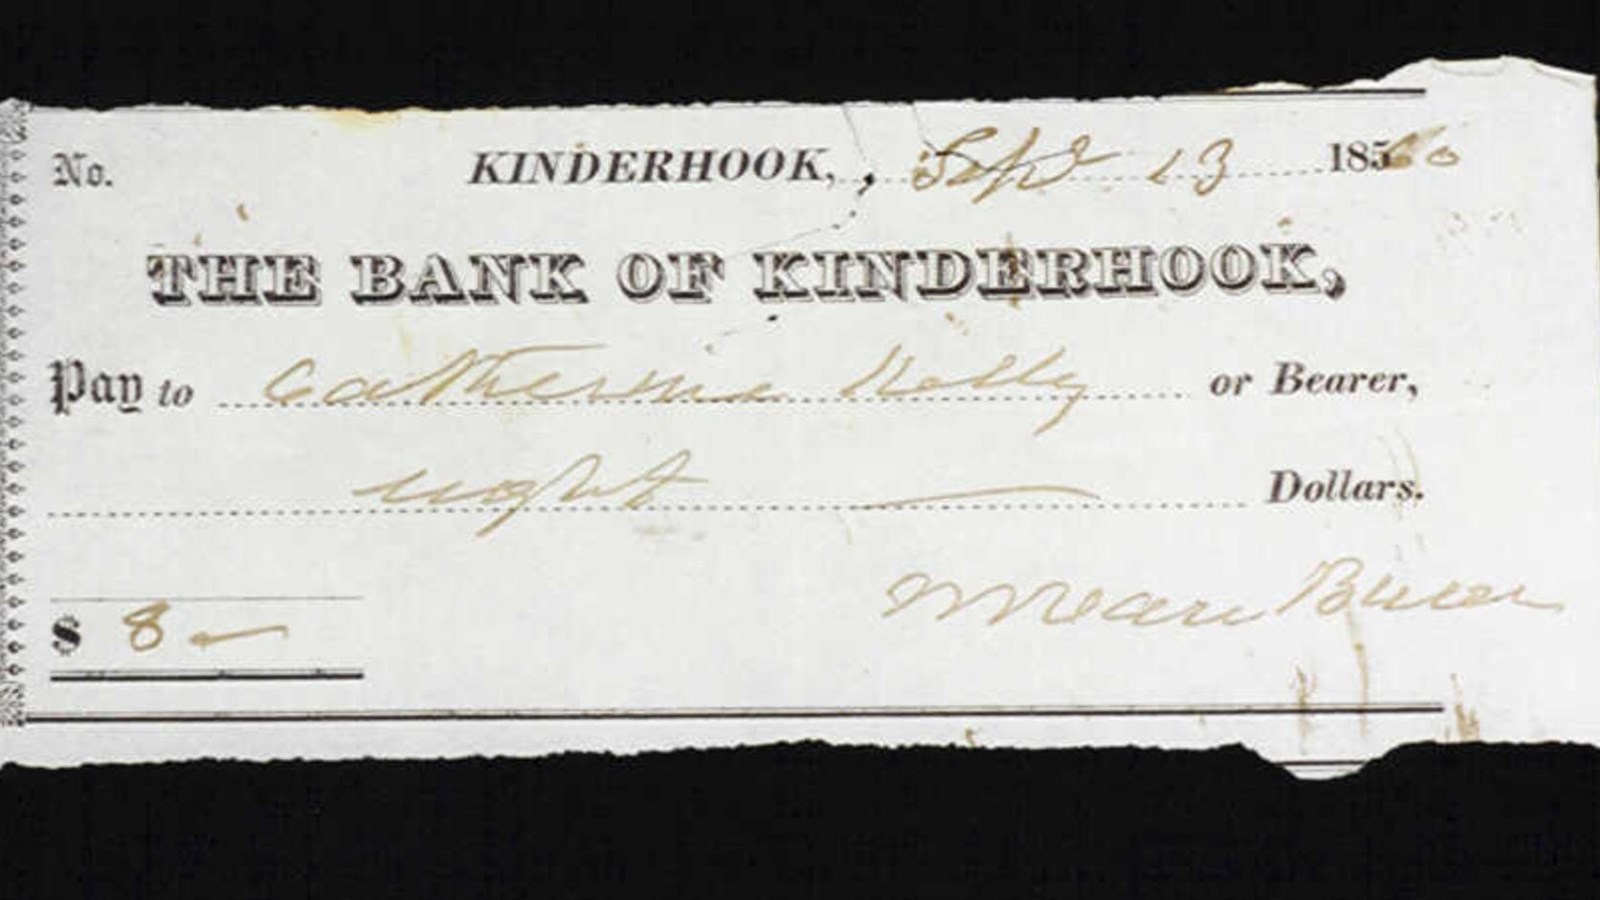 No. KINDERHOOK, Sept 13 18560
THE BANK OF KINDERHOOK,
Pay to Catherine Kelly or Bearer,
eight Dollars.
$ 8
M Van Buren